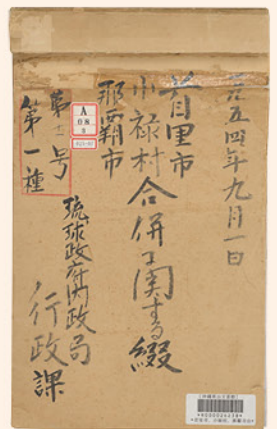 一九五四年九月一日
首里市
小禄村合併に関する綴
那覇市
第十一号
第一種
琉球政府内政局
行政課
A
08